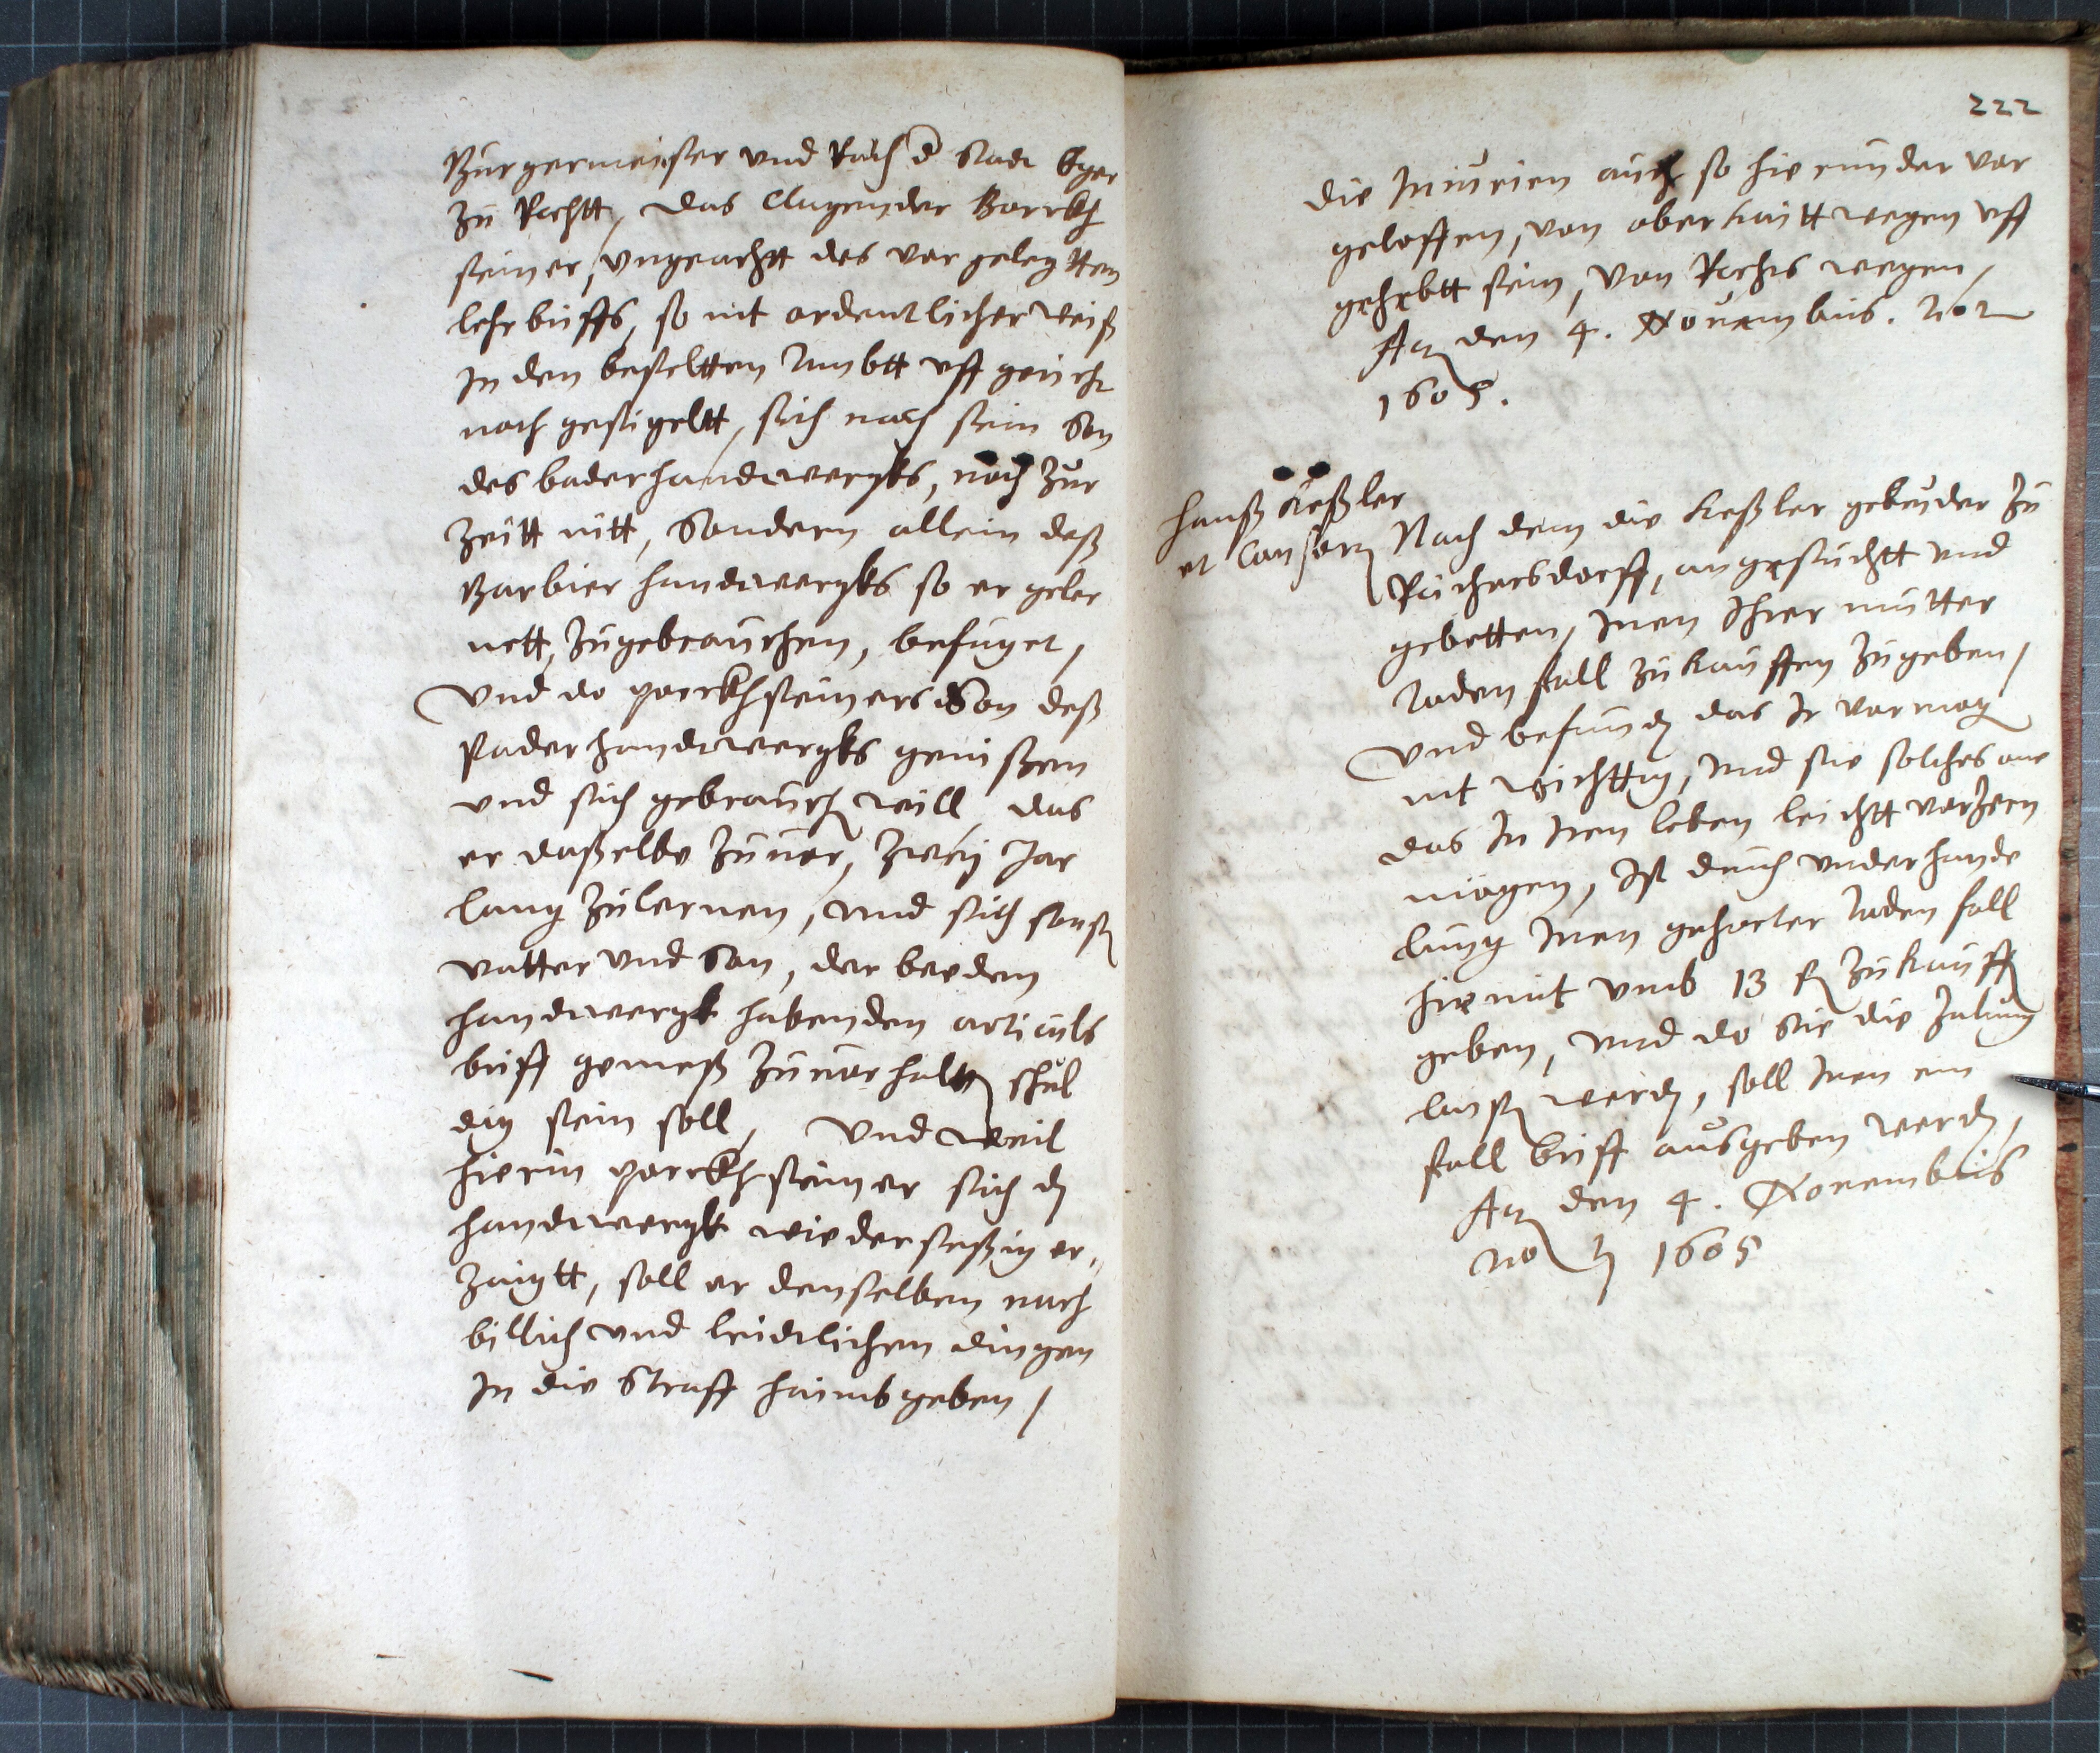 Burgermeister vnd Rath d Stadt Eger
zu Recht, das Clagender Barckh
steiner, vngeacht des vorgelegtten
lehrbriffs, so nit ordentlicher weiß
In den bestelten Ambtt vffgericht
noch gesigeltt, sich noch sein Son
des baderhandtwergks, noch zur
Zeitt nitt, Sondern allein deß
Barbier handtwergks so er geler
nett, zugebrauchen, befuget,
Vnd do parckhsteiners Son deß
Baderhandtwergks genißen
vnd sich gebrauch will, das
er daßelbe zuuor, zweij Jar
lang zulernen, vnd sich sonst
vatter vnd Son, der beeden
handtwergk habenden articuls
briff gemeß zuuorhaltn schul
dig sein soll, Vnd weil
hierin parckhsteiner sich dz
handtwergk wiedersessig er,
zaigtt, soll er denselben nach
billich vnd leidtlichen dingen
In die Straff haimbgeben,
222
die Iniurien auch so hierunder vor
geloffen, von oberkaitt wegen vff
gehebtt sein, Von Rechts wegen,
Act den 4. Nouembris. No
1605.
Hanß Keßler
et Consort
Nach dem die Keßler gebruder zu
Reichersdorff, angesuchtt vnd
gebetten, Inen Ihrer mutter
Toden fall zukauffen zugeben,
Vnd befundn das Ir vormog
nit wichttig, vnd sie solches one
das In Iren leben leichtt vorzern
mogen, Ist durch vnderhande
lung Inen gehorter Toden fall
hiemit vmb 13 f zukauff
geben, vnd do sie die Zalung
laistn werdn, soll Inen ein
fall briff ausgeben werdn,
Act den 4. Nouembris
No 1605